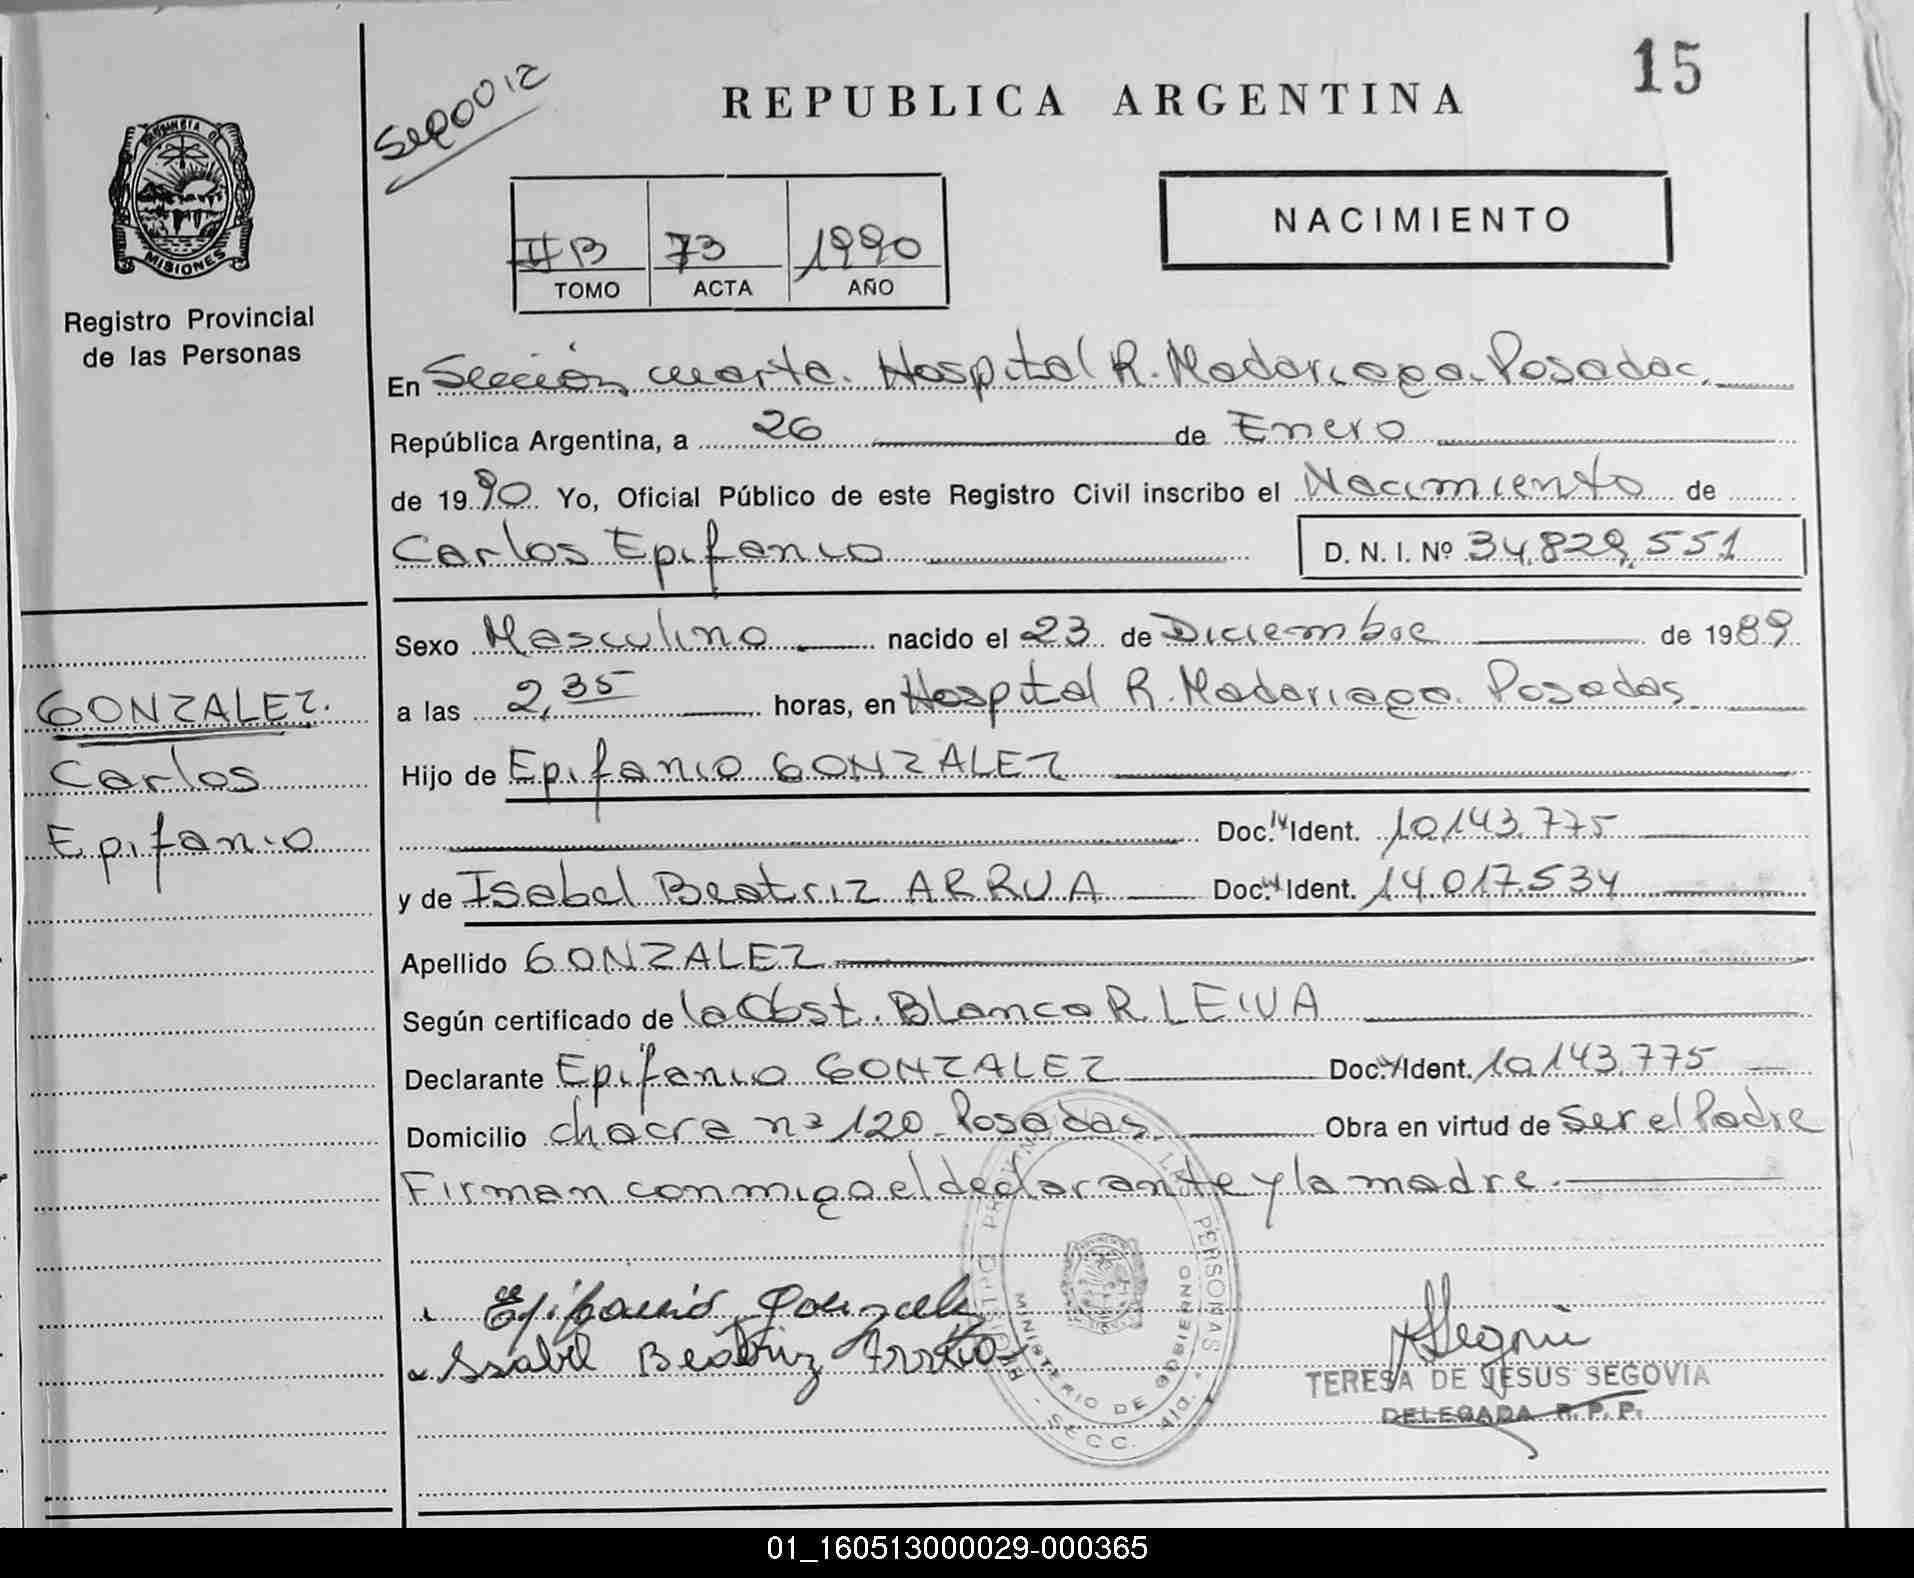 15
REPUBLICA ARGENTINA
PROVINCIA DE
MISIONES
Registro Provincial
de las Personas
IIB 73 1990
TOMO ACTA AÑO
NACIMIENTO
En Sección cuarta. Hospital R. Madariaga. Posadas.
República Argentina, a 26 de Enero
de 1990 Yo, Oficial Público de este Registro Civil inscribo el Nacimiento de
Carlos Epifanio D. N. I. Nº 34.829.551
Sexo Masculino nacido el 23 de Diciembre de 1989
a las 2,35 horas, en Hospital R. Madariaga. Posadas.
Hijo de Epifanio GONZALEZ
Doc. Ident. 10.143.775
y de Isabel Beatriz ARRUA Doc. Ident. 14.017.534
Apellido GONZALEZ
Según certificado de la Obst. Blanca R. LEIVA
Declarante Epifanio GONZALEZ Doc. Ident. 10.143.775
Domicilio chacra nº 120 - Posadas. Obra en virtud de ser el Padre
Firman conmigo el declarante y la madre.
GONZALEZ.
Carlos
Epifanio
Epifanio Gonzalez
Isabel Beatriz Arrua
REGISTRO PROVIN LAS PERSONAS
MINISTERIO DE GOBIERNO
SECC. 4ta.
TERESA DE JESUS SEGOVIA
DELEGADA R. P. P.
01_160513000029-000365